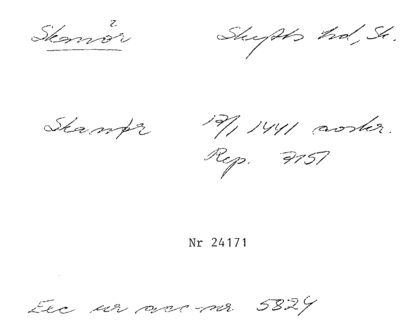 2.
Skanör Skytts hd, Sk.
Skanør 17/1 1441 avskr.
Rep. 7151
Nr 24171
Exc ur acc-nr 5824